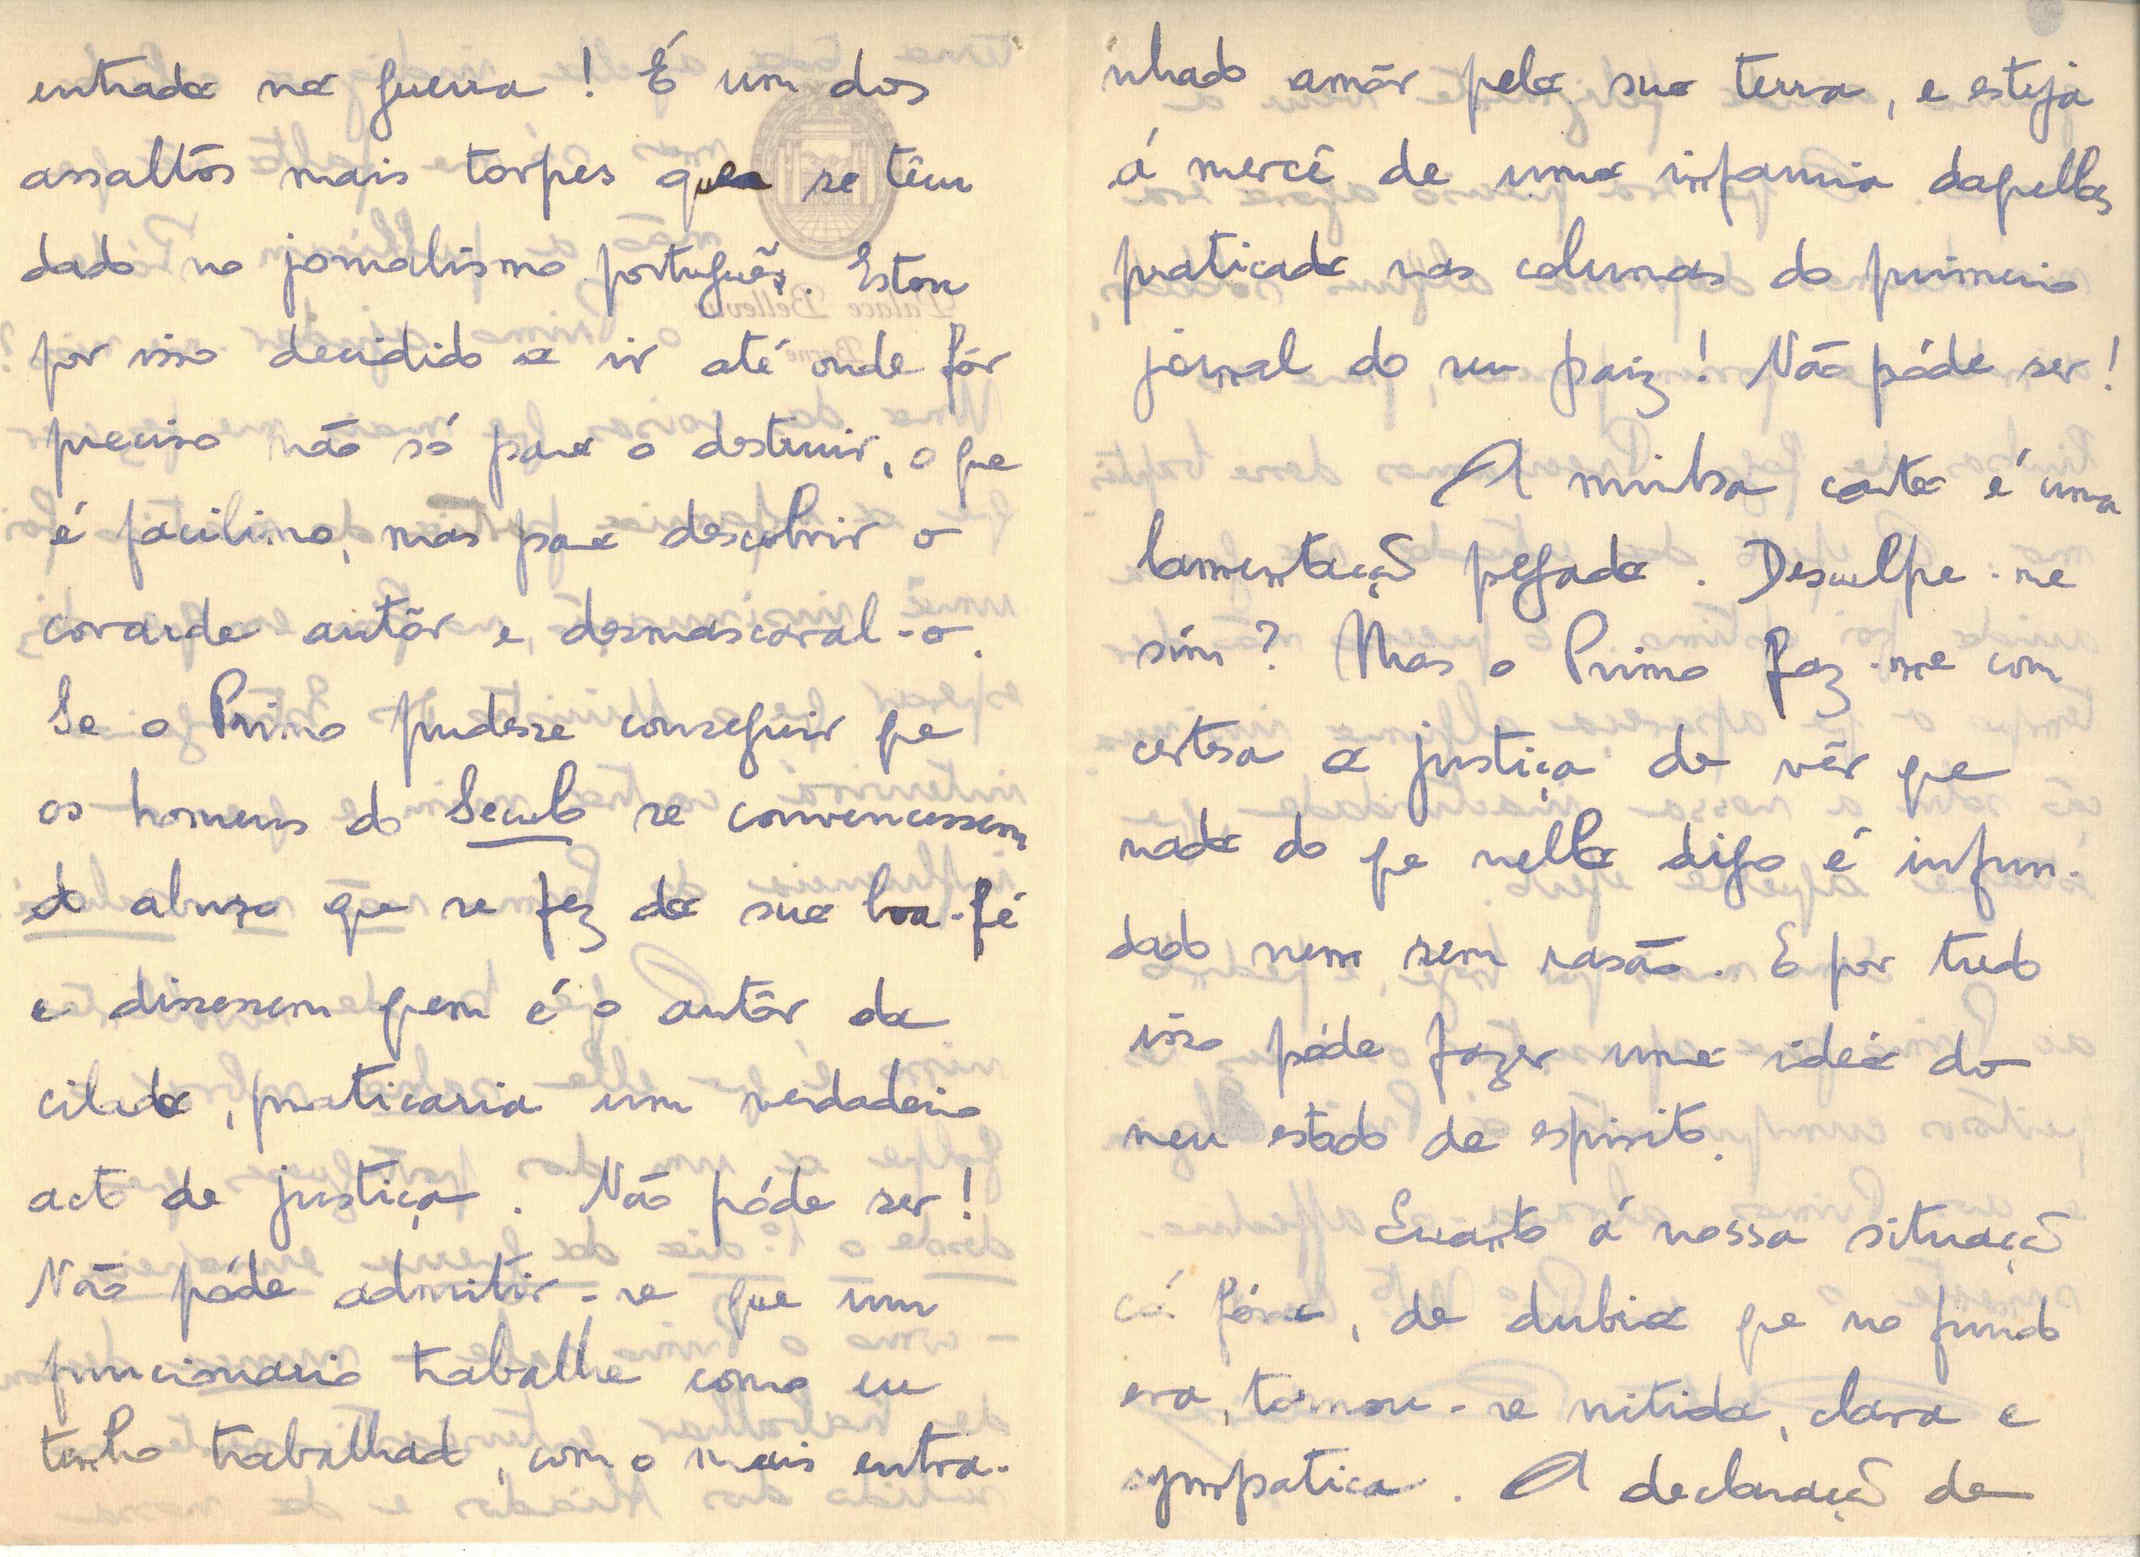 entrada na guerra! É um dos
assaltos mais torpes que se têm
dado no jornalismo português. Estou
por isso decidido a ir até onde fôr
preciso não só para o destruir, o que
é facilimo, mas para descobrir o
covarde autôr e desmascaral-o.
Se o Primo pudesse conseguir que
os homens do Seculo se convencessem
do abuso que se fez da sua boa-fé
e dissessem quem é o autôr da
cilada, praticaria um verdadeiro
acto de justiça. Não póde ser!
Não póde admitir-se que um
funcionario trabalhe como eu
tenho trabalhado, com o mais entra-
nhado amôr pela sua terra, e esteja
á mercê de uma infamia daquellas
praticada nas colunas do primeiro
jornal do seu paiz! Não póde ser!
A minha carta é uma
lamentação pegada. Desculpe-me
sim? Mas o Primo faz-me com
certesa a justiça de vêr que
nada do que nella digo é infun-
dado nem sem rasão. E por tudo
isso póde fazer uma idéa do
meu estado de espirito.
Quanto á nossa situação
cá fóra, de dubia que no fundo
era, tornou-se nitida, clara e
sympatica. A declaração de